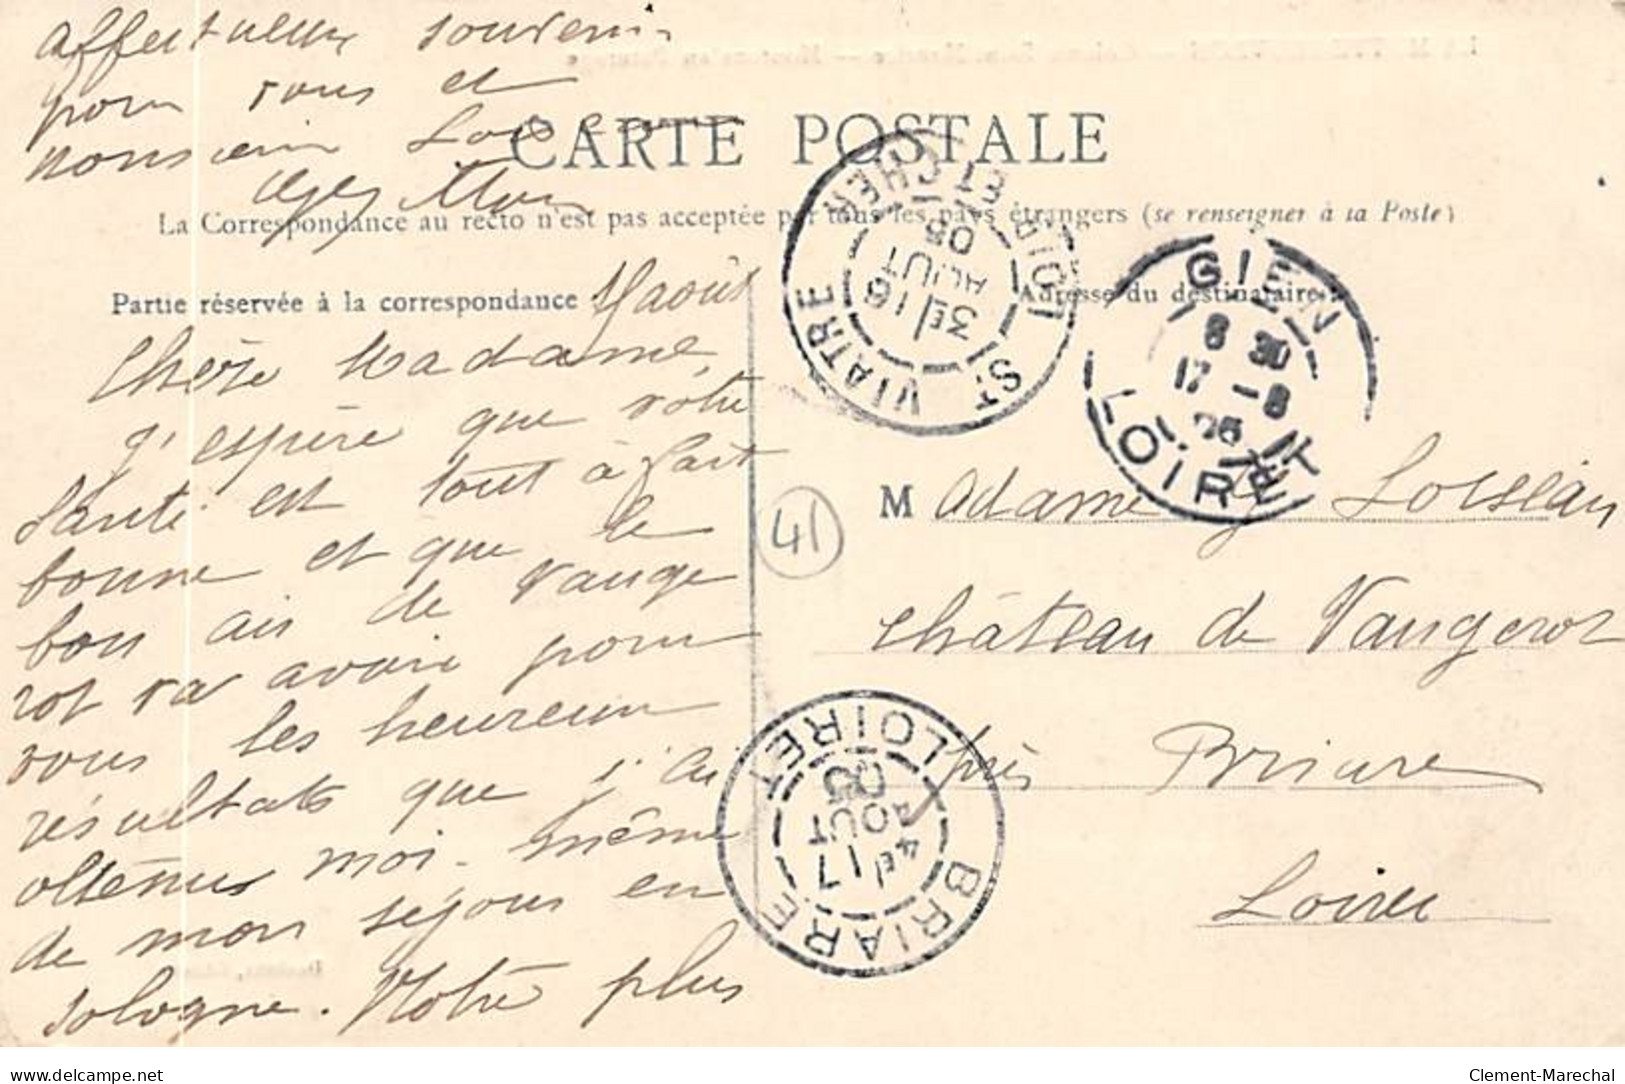 affectueux souvenir
pour vous et
monsieur
CARTE POSTALE
La Correspondance au recto n'est pas acceptée par tous les pays étrangers (se renseigner à la Poste)
Partie réservée à la correspondance
août
Adresse du destinataire
Chère Madame,
j'espère que votre
santé est tout à fait
bonne et que le
bon air de Vauge
rot va avoir pour
vous les heureux
résultats que j'ai
obtenus moi-même
de mon séjour en
Sologne. Votre plus
ST VIATRE LOIR ET CHER
3E/16
AOUT
05
GIEN LOIRET
8 30
17 -8
05
41
Madame Loiseau
château de Vaugerot
près Briare
Loiret
BRIARE LOIRET
4E/17
AOUT
05
delcampe.net
Clement-Marechal